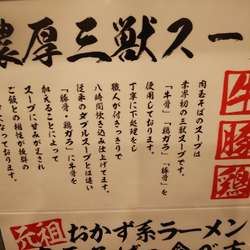 濃厚三獣スー
牛豚鶏
肉玉そばのスープは
業界初の三獣スープです。
「牛骨」「鶏ガラ」「豚骨」を
使用しております。
丁寧に下処理をし
職人が付きっきりで
八時間炊き込み仕上げてます。
従来のダブルスープとは違い
「豚骨・鶏ガラ」に牛骨を
加えることによって
スープに甘みが足され
ご飯との相性が抜群の
なっております。
元祖
おかず系ラーメン